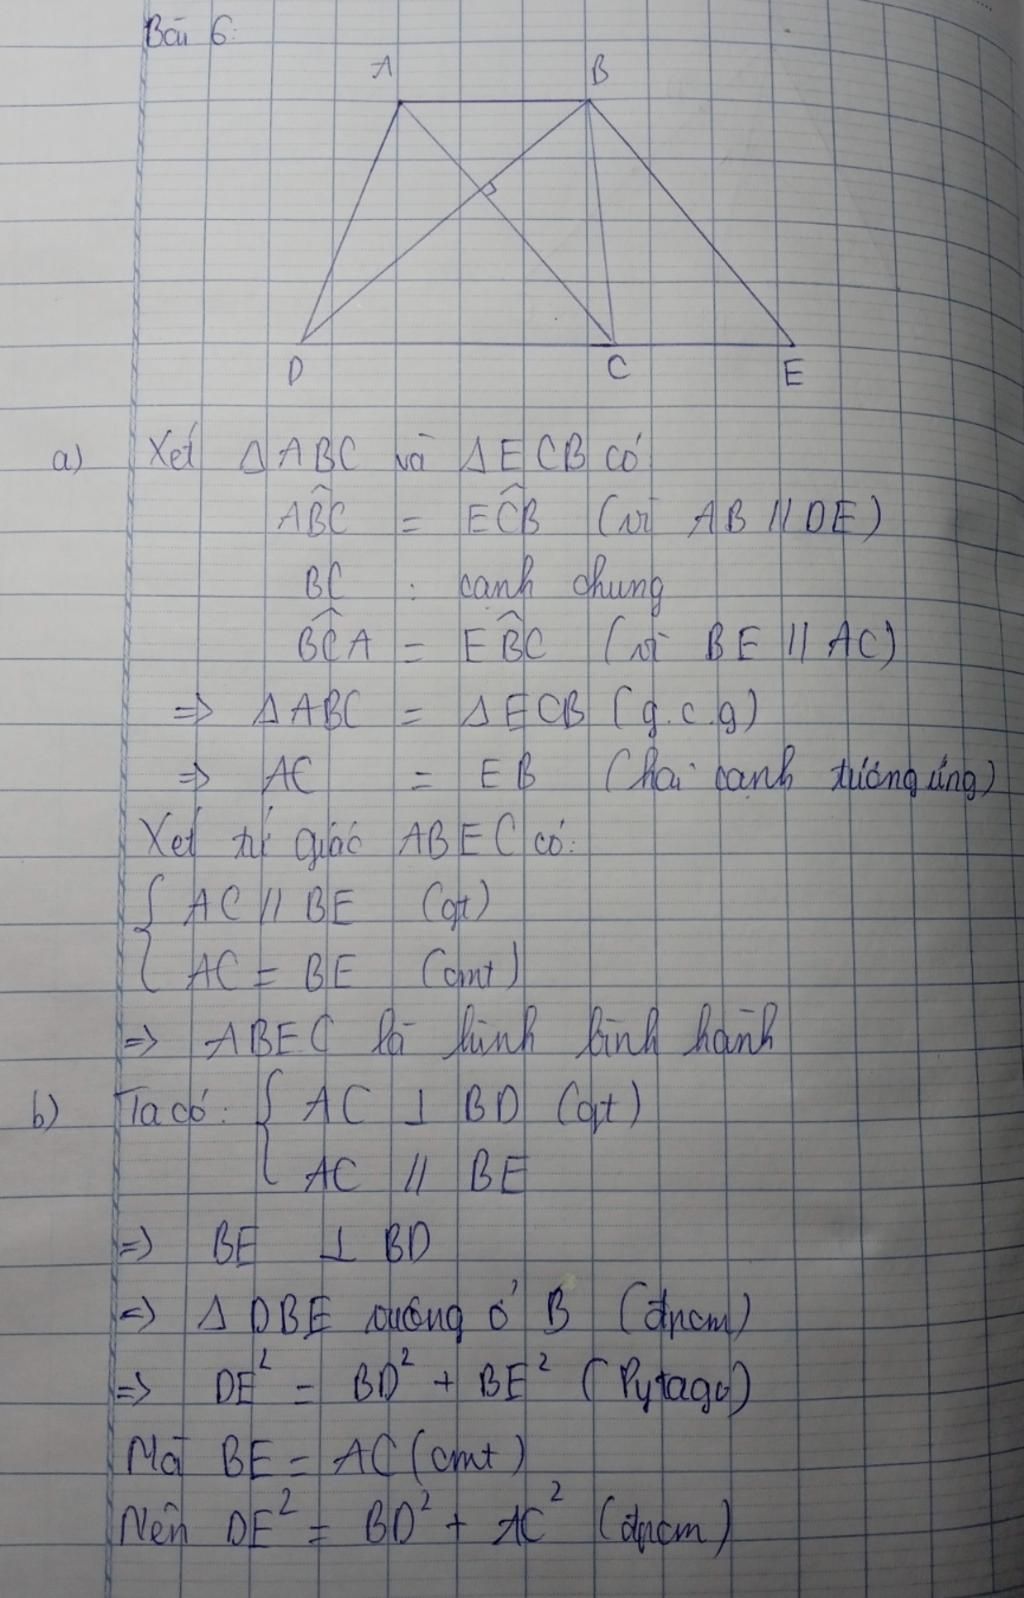 Bài 6:
A B
D C E
a) Xét ΔABC và ΔECB có
AB̂C = EĈB (vì AB // DE)
BC : cạnh chung
BĈA = EB̂C (vì BE // AC)
=> ΔABC = ΔECB (g.c.g)
=> AC = EB (hai cạnh tương ứng)
Xét tứ giác ABEC có:
{ AC // BE (gt)
AC = BE (cmt)
=> ABEC là hình bình hành
b) Ta có: { AC ⊥ BD (gt)
AC // BE
=> BE ⊥ BD
=> Δ DBE vuông ở B (đpcm)
=> DE² = BD² + BE² (Pytago)
Mà BE = AC (cmt)
Nên DE² = BD² + AC² (đpcm)